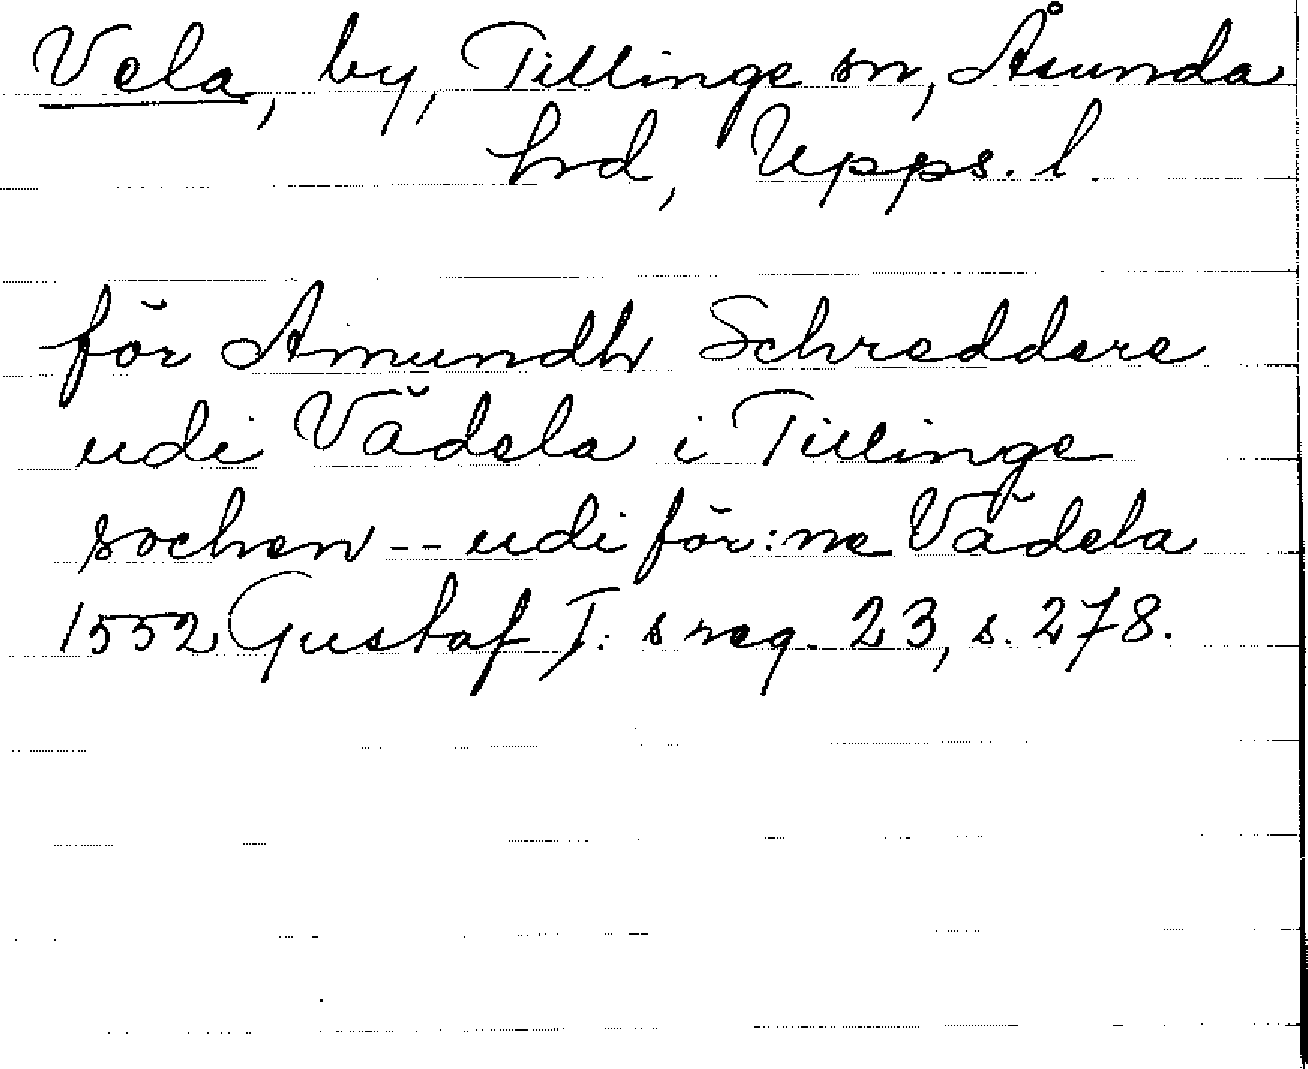 Vela, by, Tillinge sn, Åsunda
hrd, Upps. l.
för Amundh Schreddere
udi Vädela i Tillinge
sochen -- udi för:ne Vädela
1552 Gustaf I:s reg. 23, s. 278.